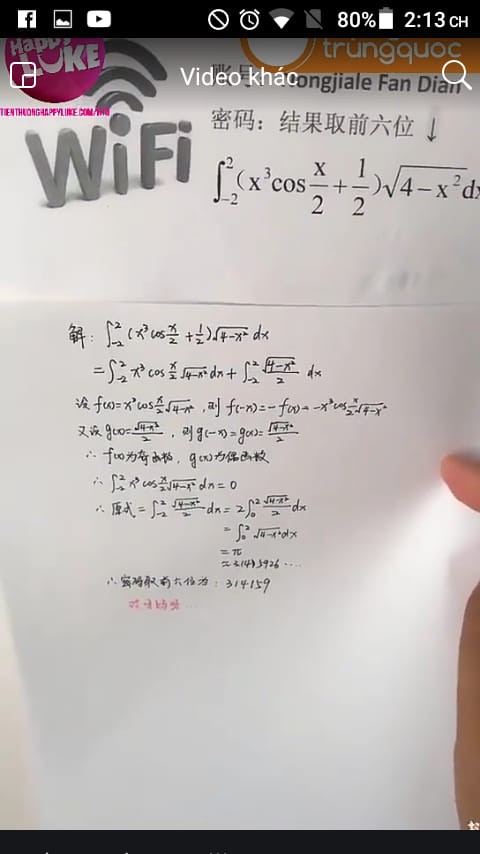 80% 2:13 CH
HAPPY
LUKE
TIENTHUONGHAPPYLUKE.COM/
Video khác
trungquốc
ongjiale Fan Dian
WiFi
密码：结果取前六位↓
∫₋₂²(x³cos x/2 + 1/2)√(4−x²)dx
解：∫₋₂²(x³cos x/2 + 1/2)√(4−x²) dx
=∫₋₂² x³cos x/2 √(4−x²) dx + ∫₋₂² √(4−x²)/2 dx
设 f(x)=x³cos x/2 √(4−x²)，则 f(−x)=−f(x)=−x³cos x/2 √(4−x²)
又设 g(x)=√(4−x²)/2，则 g(−x)=g(x)=√(4−x²)/2
∴ f(x)为奇函数，g(x)为偶函数
∴ ∫₋₂² x³cos x/2 √(4−x²) dx=0
∴ 原式=∫₋₂² √(4−x²)/2 dx=2∫₀² √(4−x²)/2 dx
=∫₀² √(4−x²) dx
=π
≈3.1415926····
∴密码取前六位为：314159